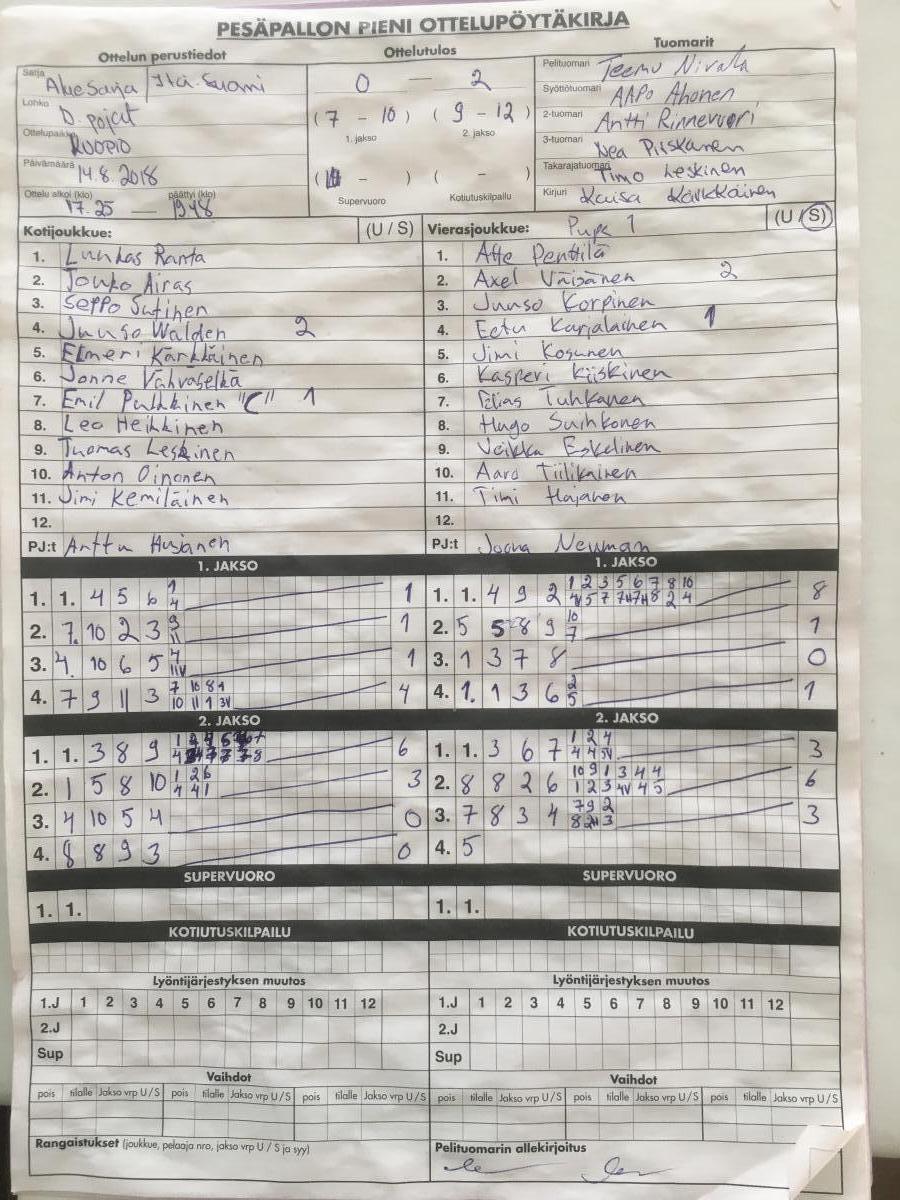 PESÄPALLON PIENI OTTELUPÖYTÄKIRJA
Ottelun perustiedot
Sarja AlueSarja Itä-Suomi
Lohko D. pojat
Ottelupaikka KUOPIO
Päivämäärä 14.8.2018
Ottelu alkoi (klo) päättyi (klo)
17.25 — 19.48
Ottelutulos
0 — 2
(7 - 10) (9 - 12)
1. jakso 2. jakso
( - ) ( - )
Supervuoro Kotiutuskilpailu
Tuomarit
Pelituomari Teemu Nivala
Syöttötuomari AAPO Ahonen
2-tuomari Antti Rinnevuori
3-tuomari Nea Piiskanen
Takarajatuomari Timo Leskinen
Kirjuri Kaisa Kärkkäinen
Kotijoukkue: (U / S)
1. Luukas Ranta
2. Jouko Airas
3. Seppo Sutinen
4. Juuso Walden 2
5. Elmeri Kärkkäinen
6. Jonne Vahvaselkä
7. Emil Pulkkinen "C" 1
8. Leo Heikkinen
9. Tuomas Leskinen
10. Anton Oinonen
11. Jimi Kemiläinen
12.
PJ:t Anttu
Vierasjoukkue: Pupe 1 (U / S)
1. Atte Penttilä
2. Axel Väisänen 2
3. Juuso Korpinen
4. Eetu Karjalainen 1
5. Jimi Kosunen
6. Kasperi Kiiskinen
7. Elias Tuhkanen
8. Hugo Suihkonen
9. Veikka Eskelinen
10. Aaro Tiilikainen
11. Timi Hajanen
12.
PJ:t Joona Newman
1. JAKSO
1. 1. 4 5 6 1 4 1
2. 7. 10 2 3 9 11 1
3. 4. 10 6 5 4 11V 1
4. 7 9 11 3 7 10 8 1 10 11 1 3V 4
1. JAKSO
1. 1. 4 9 2 1 2 3 5 6 7 8 10 8
2. 5 5 8 9 10 7 1
3. 1 3 7 8 0
4. 1. 1 3 6 2 5 1
2. JAKSO
1. 1. 3 8 9 6
2. 1 5 8 10 1 2 6 4 4 1 3
3. 4 10 5 4 0
4. 8 8 9 3 0
2. JAKSO
1. 1. 3 6 7 1 2 4 4 4 5V 3
2. 8 8 2 6 10 9 1 3 4 4 1 2 3 4V 4 5 6
3. 7 8 3 4 7 9 2 3
4. 5
SUPERVUORO
1. 1.
SUPERVUORO
1. 1.
KOTIUTUSKILPAILU
KOTIUTUSKILPAILU
Lyöntijärjestyksen muutos
1.J 1 2 3 4 5 6 7 8 9 10 11 12
2.J
Sup
Lyöntijärjestyksen muutos
1.J 1 2 3 4 5 6 7 8 9 10 11 12
2.J
Sup
Vaihdot
pois tilalle Jakso vrp U / S pois tilalle Jakso vrp U / S pois tilalle Jakso vrp U / S
Vaihdot
pois tilalle Jakso vrp U / S pois tilalle Jakso vrp U / S pois tilalle Jakso vrp U / S
Rangaistukset (joukkue, pelaaja nro, jakso vrp U / S ja syy)
Pelituomarin allekirjoitus